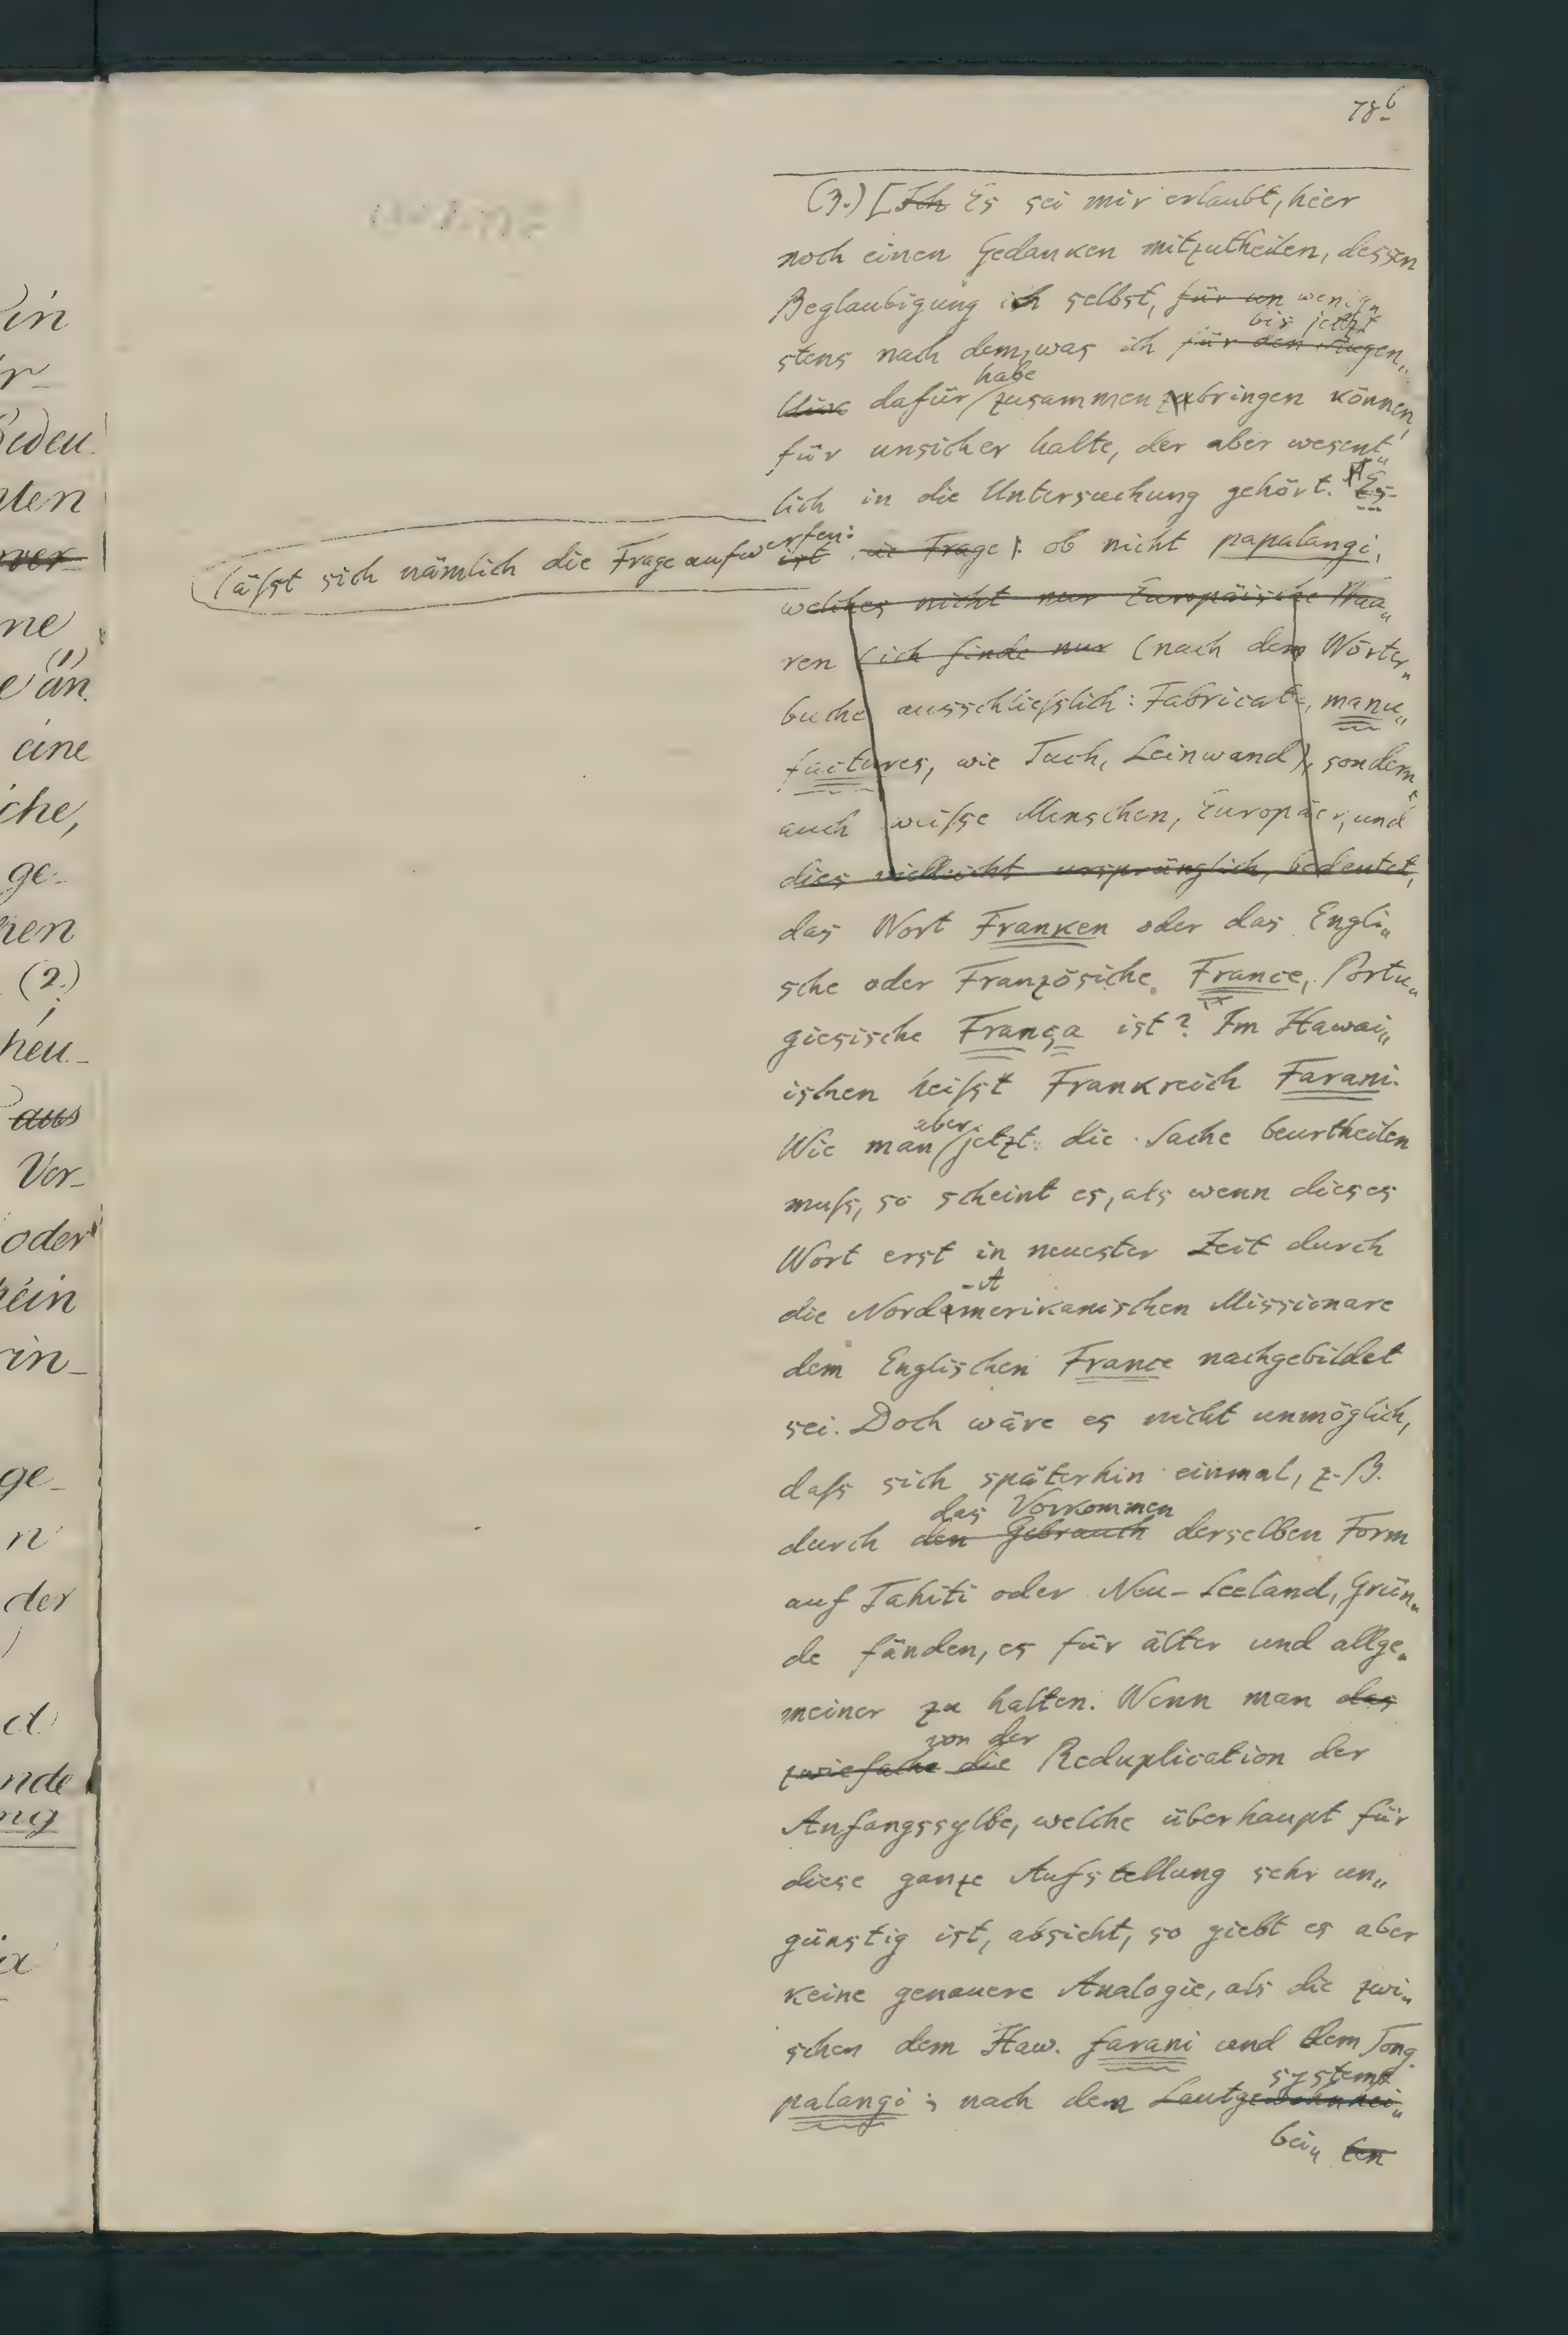 78b
(3.) [Ich Es sei mir erlaubt, hier
noch einen Gedanken mitzutheilen, dessen
Beglaubigung ich selbst, für un wenig„
bis jetzt
stens nach dem, was ich für den Augen„
habe
blick dafür zusammen zubringen können,
für unsicher halte, der aber wesent„
lich in die Untersuchung gehört. Es
läſst sich nämlich die Frage aufwerfen:
ist die Frage: ob nicht papalangi,
welches nicht nur Europäische Waa„
ren (ich finde nur (nach dem Wörter„
buche ausschlieſslich: Fabricate, manu„
factures, wie Tuch, Leinwand), sondern
auch weiſse Menschen, Europäer, und
dies vielleicht ursprünglich, bedeutet,
das Wort Franken oder das Engli„
sche oder Französiche France, Portu„
giesische França ist? Im Hawai„
ischen heiſst Frankreich Farani.
aber
Wie man jetzt die Sache beurtheilen
muſs, so scheint es, als wenn dieses
Wort erst in neuester Zeit durch
-A
die Nordamerikanischen Missionare
dem Englischen France nachgebildet
sei. Doch wäre es nicht unmöglich,
daſs sich späterhin einmal, z. B.
das Vorkommen
durch den Gebrauch derselben Form
auf Tahiti oder Neu-Seeland, Grün„
de fänden, es für älter und allge„
meiner zu halten. Wenn man das
von der
zwiefache die Reduplication der
Anfangssylbe, welche überhaupt für
diese ganze Aufstellung sehr un„
günstig ist, absieht, so giebt es aber
keine genauere Analogie, als die zwi„
schen dem Haw. farani und dem Tong.
systeme
palangi; nach dem Lautgewohnhei„
bei„ ten
in
ne
(1)
eine
che,
ge-
(2.)
heu-
aus
Vor-
oder
ge-
n
der